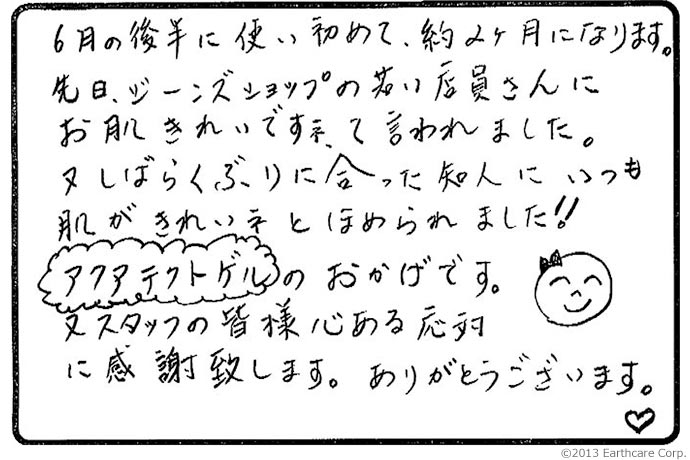 6月の後半に使い初めて、約2ヶ月になります。
先日、ジーンズショップの若い店員さんに
お肌きれいですネ、て言われました。
又しばらくぶりに合った知人にいつも
肌がきれいネとほめられました!!
アクアテクトゲルのおかげです。
又スタッフの皆様心ある応対
に感謝致します。ありがとうございます。
©2013 Earthcare Corp.